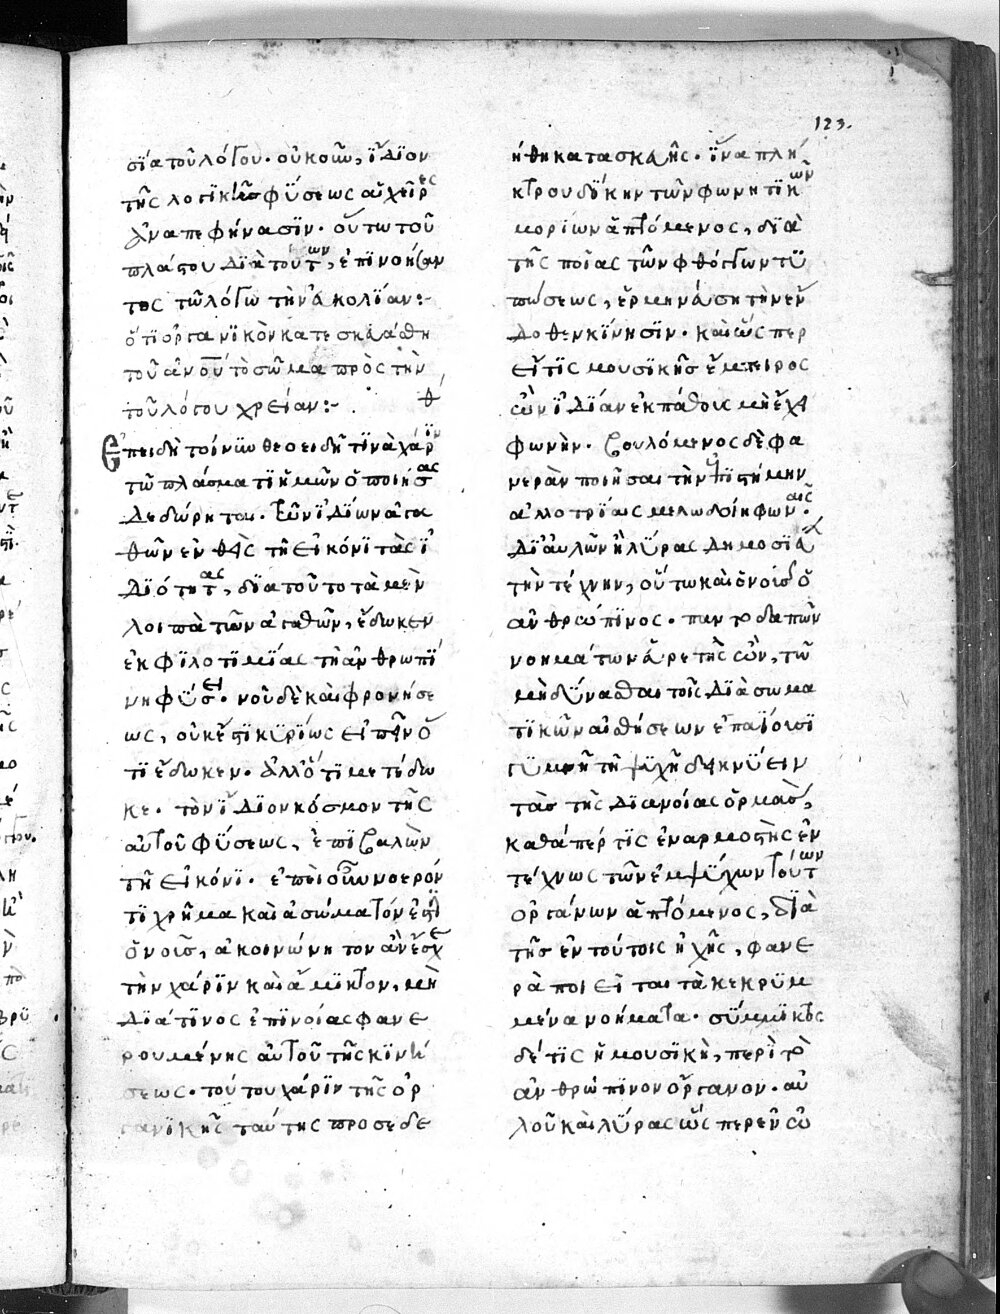 123.
σία τοῦ λόγου. οὐκοῦν, ἴδιον
τῆς λογικῆς φύσεως αἱ χεῖρες
ἀναπεφήνασιν. οὕτω τοῦ
πλάστου διὰ τούτων, ἐπινοήσαν
τος τῷ λόγῳ τὴν εὐκολίαν:-
ὅτι ὀργανικὸν κατεσκευάσθη
τοῦ ἀνου τὸ σῶμα πρὸς τὴν
τοῦ λόγου χρείαν:- θ
Ἐπειδὴ τοίνυν θεοειδῆ τινα χάριν
τῷ πλάσματι ἡμῶν ὁ ποιήσας
δεδώρηται. τῶν ἰδίων ἀγα
θῶν ἐνθεὶς τῇ εἰκόνι τὰς ἰ
διότητας, διατοῦτο τὰ μὲν
λοιπὰ τῶν ἀγαθῶν, ἔδωκεν
ἐκ φιλοτιμίας τῇ ἀνθρωπί
νῃ φύσει. νοῦ δὲ καὶ φρονήσε
ως, οὐκ ἔστι κυρίως εἰπεῖν ὅ
τι ἔδωκεν. ἀλλ' ὅτι μετέδω
κε. τὸν ἴδιον κόσμον τῆς
αὐτοῦ φύσεως, ἐπιβαλὼν
τῇ εἰκόνι. ἐπεὶ οὖν νοερόν
τι χρῆμα καὶ ἀσώματόν ἐστι
ὁ νοῦς, ἀκοινώνητον ἂν ἔσχε
τὴν χάριν καὶ ἄμικτον, μὴ
διά τινος ἐπινοίας φανε
ρουμένης αὐτοῦ τῆς κινή
σεως. τούτου χάριν τῆς ὀρ
γανικῆς ταύτης προσεδε
ήθη κατασκευῆς. ἵνα πλή
κτρου δίκην τῶν φωνητικῶν
μορίων ἁπτόμενος, διὰ
τῆς ποίας τῶν φθόγγων τυ
πώσεως, ἑρμηνεύσῃ τὴν ἔν
δοθεν κίνησιν. καὶ ὥσπερ
εἴ τις μουσικῆς ἔμπειρος
ὢν ἰδίαν ἐκ πάθους μὴ ἔχοι
φωνὴν. βουλόμενος δὲ φα
νερὰν ποιῆσαι τὴν ἐπιστήμην
ἀλλοτρίαις μελωδοίη φωναῖς.
δι' αὐλῶν ἢ λύρας δημοσιεύ
την τέχνην, οὕτω καὶ ὁ νοῦς ὁ
ἀνθρώπινος. παντοδαπῶν
νοημάτων εὑρετὴς ὢν, τῷ
μὴ δύνασθαι τοῖς διὰ σωμα
τικῶν αἰσθήσεων ἐπαΐουσι
γυμνῇ τῇ ψυχῇ δεικνύειν
τὰς τῆς διανοίας ὁρμὰς,
καθάπέρ τις ἐναρμοστὴς ἔν
τεχνος τῶν ἐμψύχων τούτων
ὀργάνων ἁπτόμενος, διὰ
τῆς ἐν τούτοις ἠχῆς, φανε
ρὰ ποιεῖται τὰ κεκρυμ
μένα νοήματα. σύμμικτος
δέ τις ἡ μουσικὴ, περὶ τὸ
ἀνθρώπινον ὄργανον. αὐ
λοῦ καὶ λύρας ὥσπερ ἐν συ